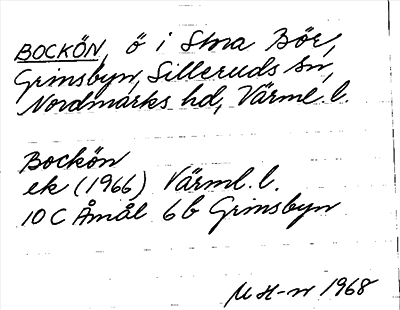 BOCKÖN, ö i Stora Bör,
Grinsbyn, Silleruds sn,
Nordmarks hd, Värml. l.
Bockön
ek (1966) Värml. l.
10 C Åmål 6b Grinsbyn
M H-n 1968